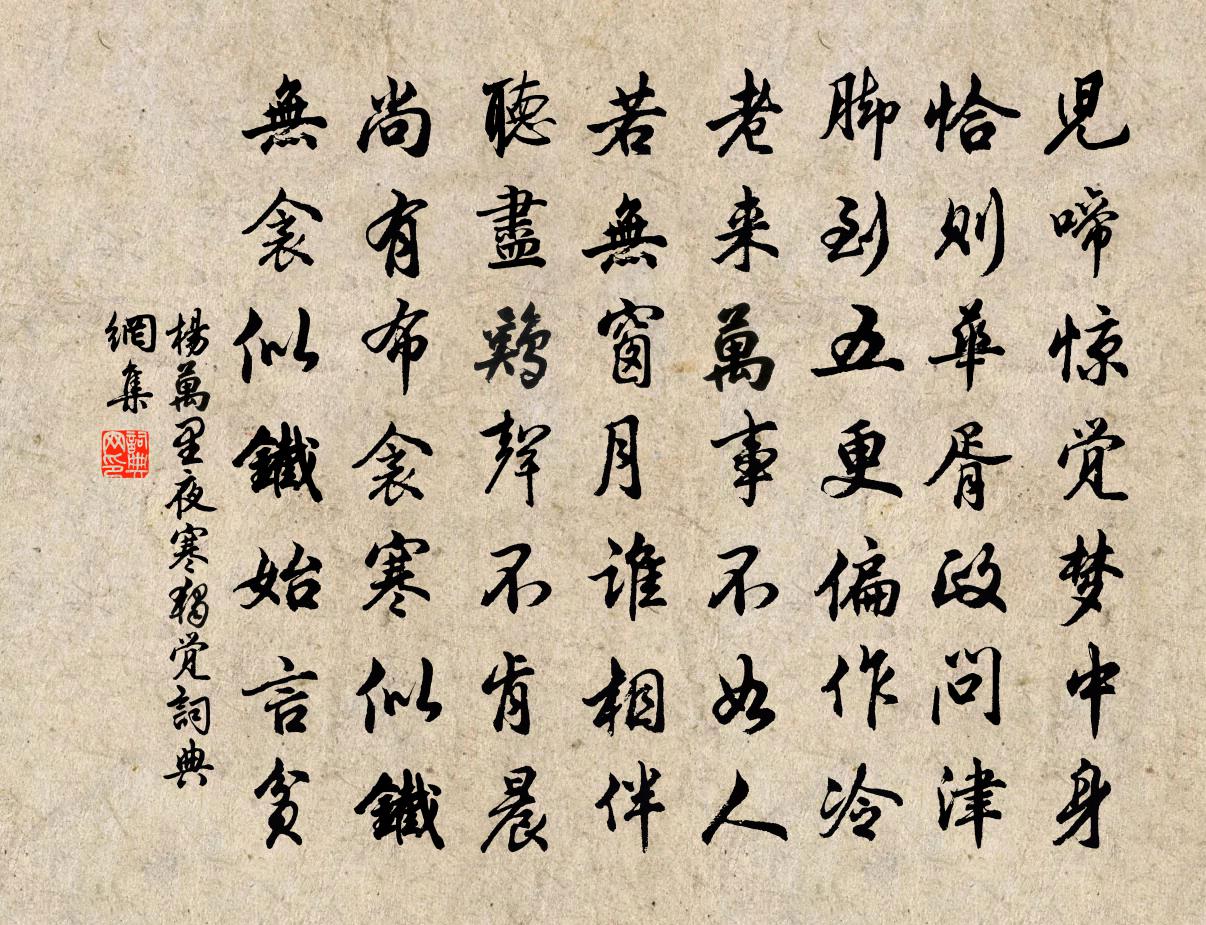 児啼惊觉梦中身
恰則華胥政問津
脚到五更偏作冷
老来萬事不如人
若無窗月誰相伴
聽盡鷄聲不肯晨
尚有布衾寒似鐵
無衾似鐵始言貧
楊萬里夜寒獨觉詞典
網集
詞典
网印